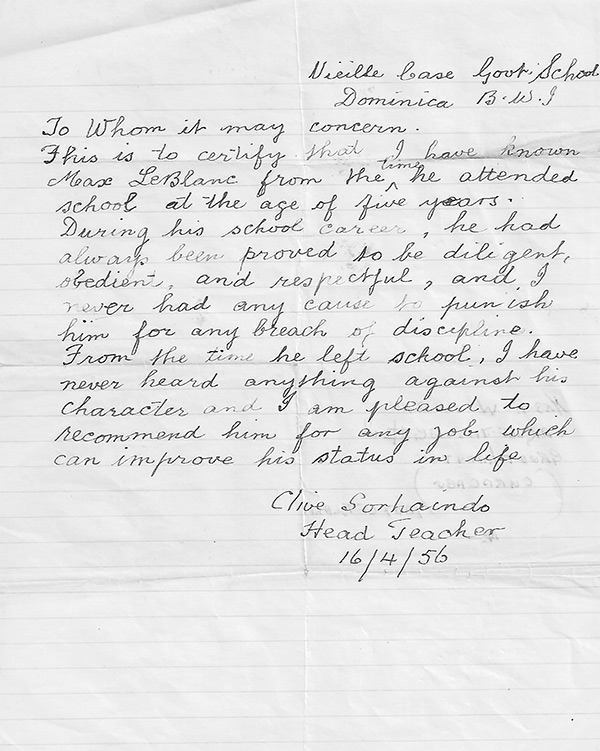 Vieille Case Govt. School
Dominica B.W.I
To Whom it may concern.
This is to certify that I have known
Max LeBlanc from the time he attended
school at the age of five years.
During his school career, he had
always been proved to be diligent,
obedient, and respectful, and I
never had any cause to punish
him for any breach of discipline.
From the time he left school, I have
never heard anything against his
character and I am pleased to
recommend him for any job which
can improve his status in life
Clive Sorhaindo
Head Teacher
16/4/56